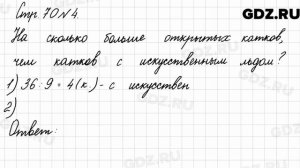 GDZ.RU
Стр. 70 № 4
На сколько больше открытых катков,
чем катков с искусственным льдом?
1) 36 : 9 = 4 (к.) - с искусствен
2)
Ответ: